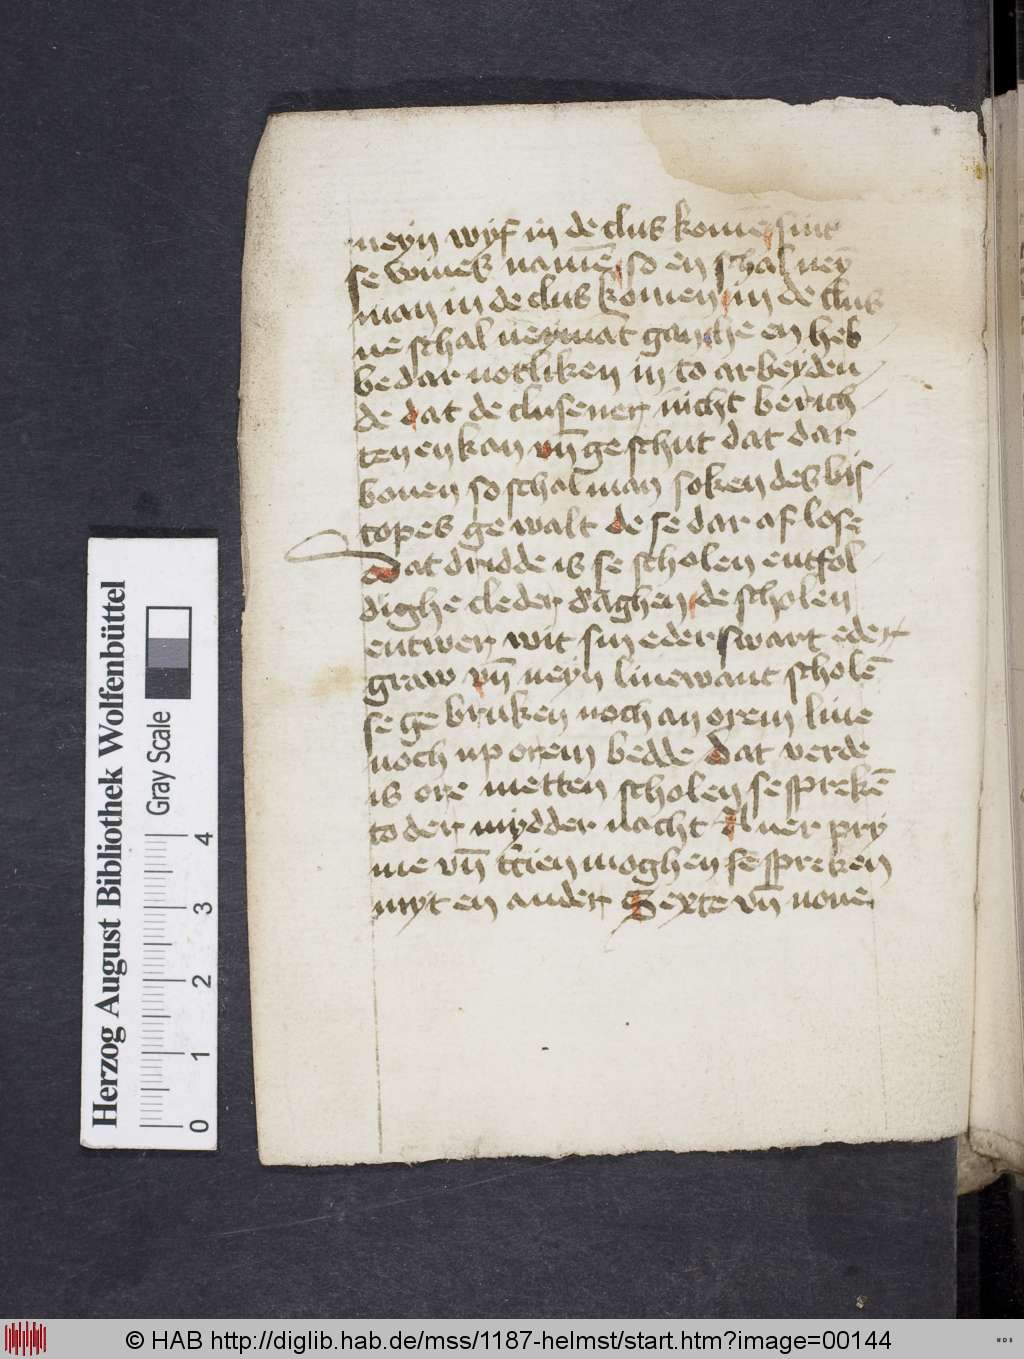 neyn wyf in de clus komē sint
se vmmes namē so en schal ney
man in de clus komen in de clus
ne schal neymāt gan he en heb
be dar notliken in to arbeyden
de dat de clusener nicht berich
ten en kan vn̄ geschut dat dar
bouen so schal man soken des bis
copes ge walt de se dar af lose
Dat dridde is se scholen entfol
dighe cleder draghen de scholen
entwer wit sin eder swart eder
graw vn̄ neyn linewant scholē
se ge bruken noch an orem liue
noch up orem bedde dat verde
is ore metten scholen se sprekē
to der mydder nacht Auer pry
me vn̄ tcien moghen se spreken
myt en ander Sexte vn̄ none
Herzog August Bibliothek Wolfenbüttel
Gray Scale
0 1 2 3 4
© HAB http://diglib.hab.de/mss/1187-helmst/start.htm?image=00144
WDB